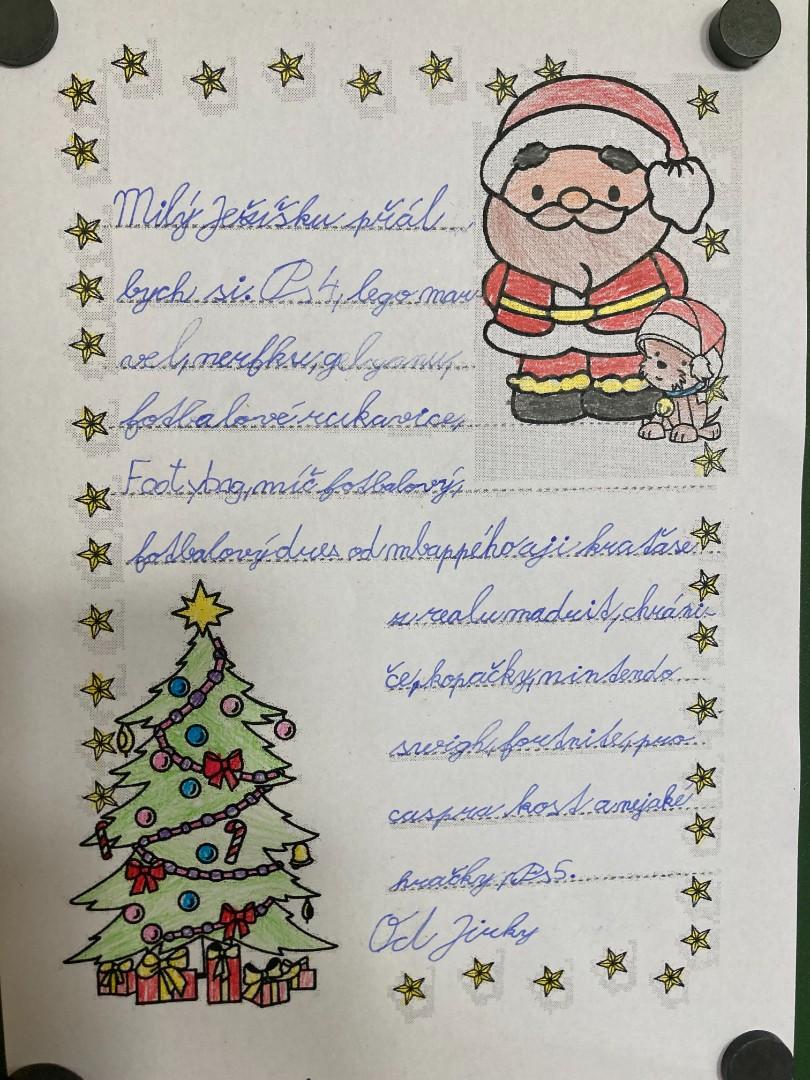 Milý Ježíšku přál
bych si. Ps4, lego mar-
vel, nerfku, gelganu,
fotbalové rukavice,
Footybag, míč fotbalový,
fotbalový dres od mbappého aji kratáse
z realu madrit, chráni-
če, kopačky, nintendo
swigh, fortnite, pro
caspra kost a nejaké
hračky, Ps5.
Od Jirky